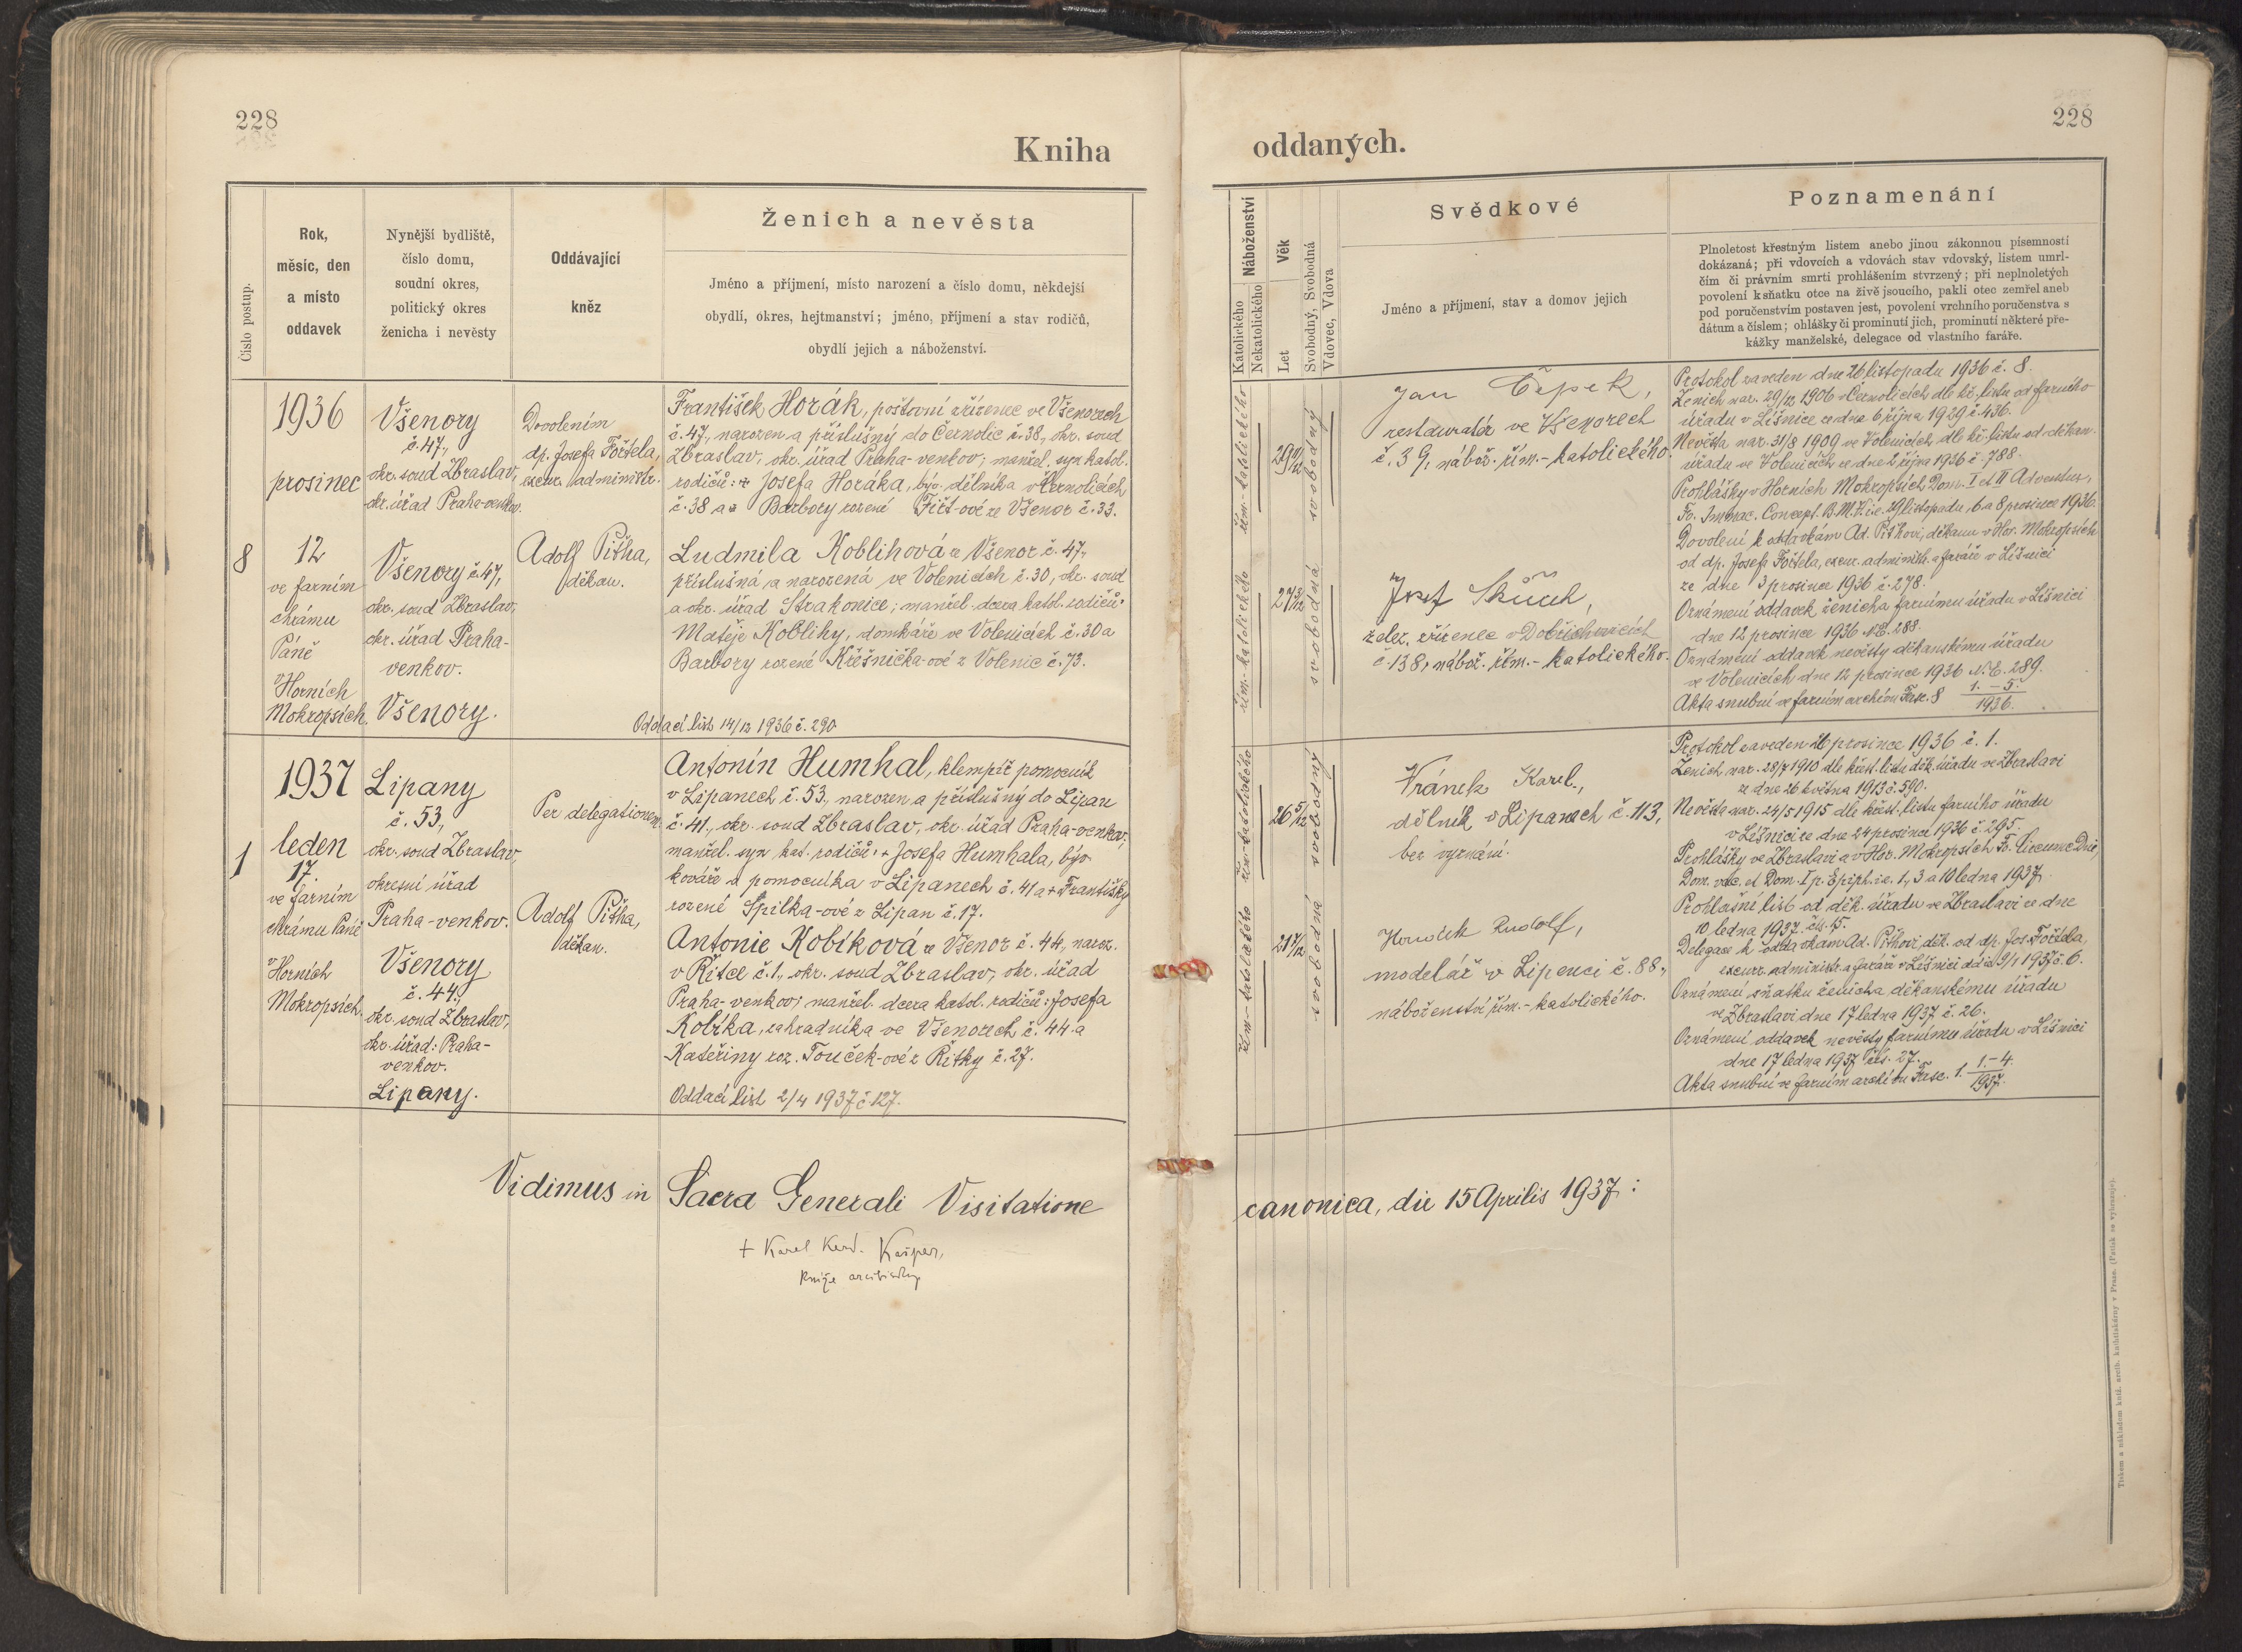 228
Kniha
Číslo postup.
Rok,
měsíc, den
a místo
oddavek
Nynější bydliště,
číslo domu,
soudní okres,
politický okres
ženicha i nevěsty
Oddávající
kněz
Ženich a nevěsta
Jméno a příjmení, místo narození a číslo domu, někdejší
obydlí, okres, hejtmanství; jméno, příjmení a stav rodičů,
obydlí jejich a náboženství.
8
1936
prosinec
12
ve farním
chrámu
Páně
v Horních
Mokropsích.
Všenory
č. 47.,
okr. soud Zbraslav,
okr. úřad Praha-venkov.
Všenory č. 47,
okr. soud Zbraslav,
okr. úřad Praha-
venkov.
Všenory.
Dovolením
dp. Josefa Fořtela,
excur. administr.
Adolf Pitha,
děkan.
František Horák, poštovní zřízenec ve Všenorech
č. 47., narozen a příslušný do Černolic č. 38., okr. soud
Zbraslav, okr. úřad Praha-venkov; manžel. syn katol.
rodičů: + Josefa Horáka, býv. dělníka v Černolicích
č. 38 a Barbory rozené Fišt-ové ze Všenor č. 33.
Ludmila Koblihová z Všenor č. 47.,
příslušná a narozená ve Volenicích č. 30, okr. soud
a okr. úřad Strakonice; manžel. dcera katol. rodičů:
Matěje Koblihy, domkáře ve Volenicích č. 30 a
Barbory rozené Křešnička-ové z Volenic č. 73.
Oddací list 14/12 1936 č. 290
1
1937
leden
17.
ve farním
chrámu Páně
v Horních
Mokropsích.
Lipany
č. 53.,
okr. soud Zbraslav,
okresní úřad
Praha-venkov.
Všenory
č. 44.,
okr. soud Zbraslav,
okr. úřad: Praha-
venkov.
Lipany.
Per delegationem.
Adolf Pitha,
děkan.
Antonín Humhal, klempíř pomocník
v Lipanech č. 53., narozen a příslušný do Lipan
č. 41., okr. soud Zbraslav, okr. úřad Praha-venkov;
manžel. syn kat. rodičů: + Josefa Humhala, býv.
kováře a pomocníka v Lipanech č. 41 a + Františky
rozené Špilka-ové z Lipan č. 17.
Antonie Kobíková z Všenor č. 44, naroz.
v Řitce č. 1., okr. soud Zbraslav, okr. úřad
Praha-venkov; manžel. dcera katol. rodičů: Josefa
Kobíka, zahradníka ve Všenorech č. 44 a
Kateřiny roz. Touček-ové z Řitky č. 27.
Oddací list 2/4 1937 č. 127.
Vidimus in Sacra Generali Visitatione
+ Karel Kard. Kašpar,
kníže arcibiskup
228
oddaných.
Náboženství
Katolického
Nekatolického
Věk
Let
Svobodný, Svobodná
Vdovec, Vdova
Svědkové
Jméno a příjmení, stav a domov jejich
Poznamenání
Plnoletost křestným listem anebo jinou zákonnou písemností
dokázaná; při vdovcích a vdovách stav vdovský, listem umrl-
čím či právním smrti prohlášením stvrzený; při neplnoletých
povolení k sňatku otce na živě jsoucího, pakli otec zemřel aneb
pod poručenstvím postaven jest, povolení vrchního poručenstva s
dátum a číslem; ohlášky či prominutí jich, prominutí některé pře-
kážky manželské, delegace od vlastního faráře.
řím.-katolického
29 11/12
svobodný
řím.-katolického
27 3/12
svobodná
Jan Čepek,
restauratér ve Všenorech
č. 39, nábož. řím.-katolického.
Josef Skůch,
želez. zřízenec v Dobřichovicích
č. 138, nábož. řím.-katolického.
Protokol zaveden dne 26 listopadu 1936 č. 8.
Ženich nar. 29/12 1906 v Černolicích dle kř. listu od farního
úřadu v Líšnice ze dne 6 října 1929 č. 436.
Nevěsta nar. 31/8 1909 ve Volenicích, dle kř. listu od děkan.
úřadu ve Volenicích ze dne 2 října 1936 č. 788.
Prohlášky v Horních Mokropsích Dom. I et II Adventus,
Fo. Immac. Concept. B.M.V. i.e. 29 listopadu, 6 a 8 prosince 1936.
Dovolení k oddavkám Ad. Pithovi, děkanu v Hor. Mokropsích
od dp. Josefa Fořtela, excur. administr. a faráře v Líšnici
ze dne 3 prosince 1936 č. 278.
Oznámení oddavek ženicha farnímu úřadu v Líšnici
dne 12 prosince 1936 N.E. 288.
Oznámení oddavek nevěsty děkanskému úřadu
ve Volenicích dne 12 prosince 1936 N.E. 289.
Akta snubní ve farním archivu Fasc. 8 1.-5. / 1936.
řím.-katolického
26 5/12
svobodný
řím.-katolického
21 7/12
svobodná
Vránek Karel.,
dělník v Lipanech č. 113,
bez vyznání.
Rudolf,
modelář v Lipenci č. 88.,
náboženství řím.-katolického.
Protokol zaveden 26 prosince 1936 č. 1.
Ženich nar. 28/7 1910 dle křest. listu děk. úřadu ve Zbraslavi
ze dne 26 května 1913 č. 590.
Nevěsta nar. 24/5 1915 dle křest. listu farního úřadu
v Líšnici ze dne 24 prosince 1936 č. 295.
Prohlášky ve Zbraslavi a v Hor. Mokropsích Fo. Circumc. Dni,
Dom. vac. et Dom. I p. Epiph. i.e. 1., 3 a 10 ledna 1937.
Prohlašní list od děk. úřadu ve Zbraslavi ze dne
10 ledna 1937. čís. 15.
Delegace k oddavkám Ad. Pithovi, děk. od dp. Jos. Fořtela,
excurr. administr. a faráře v Líšnici ddto 9/1 1937 č. 6.
Oznámení sňatku ženicha děkanskému úřadu
ve Zbraslavi dne 17 ledna 1937 č. 26.
Oznámení oddavek nevěsty farnímu úřadu v Líšnici
dne 17 ledna 1937 čís. 27.
Akta snubní ve farním archivu Fasc. 1. 1.-4. / 1937.
canonica, die 15 Aprilis 1937:
Tiskem a nákladem kníž. arcib. knihtiskárny v Praze. (Patisk se vyhrazuje).